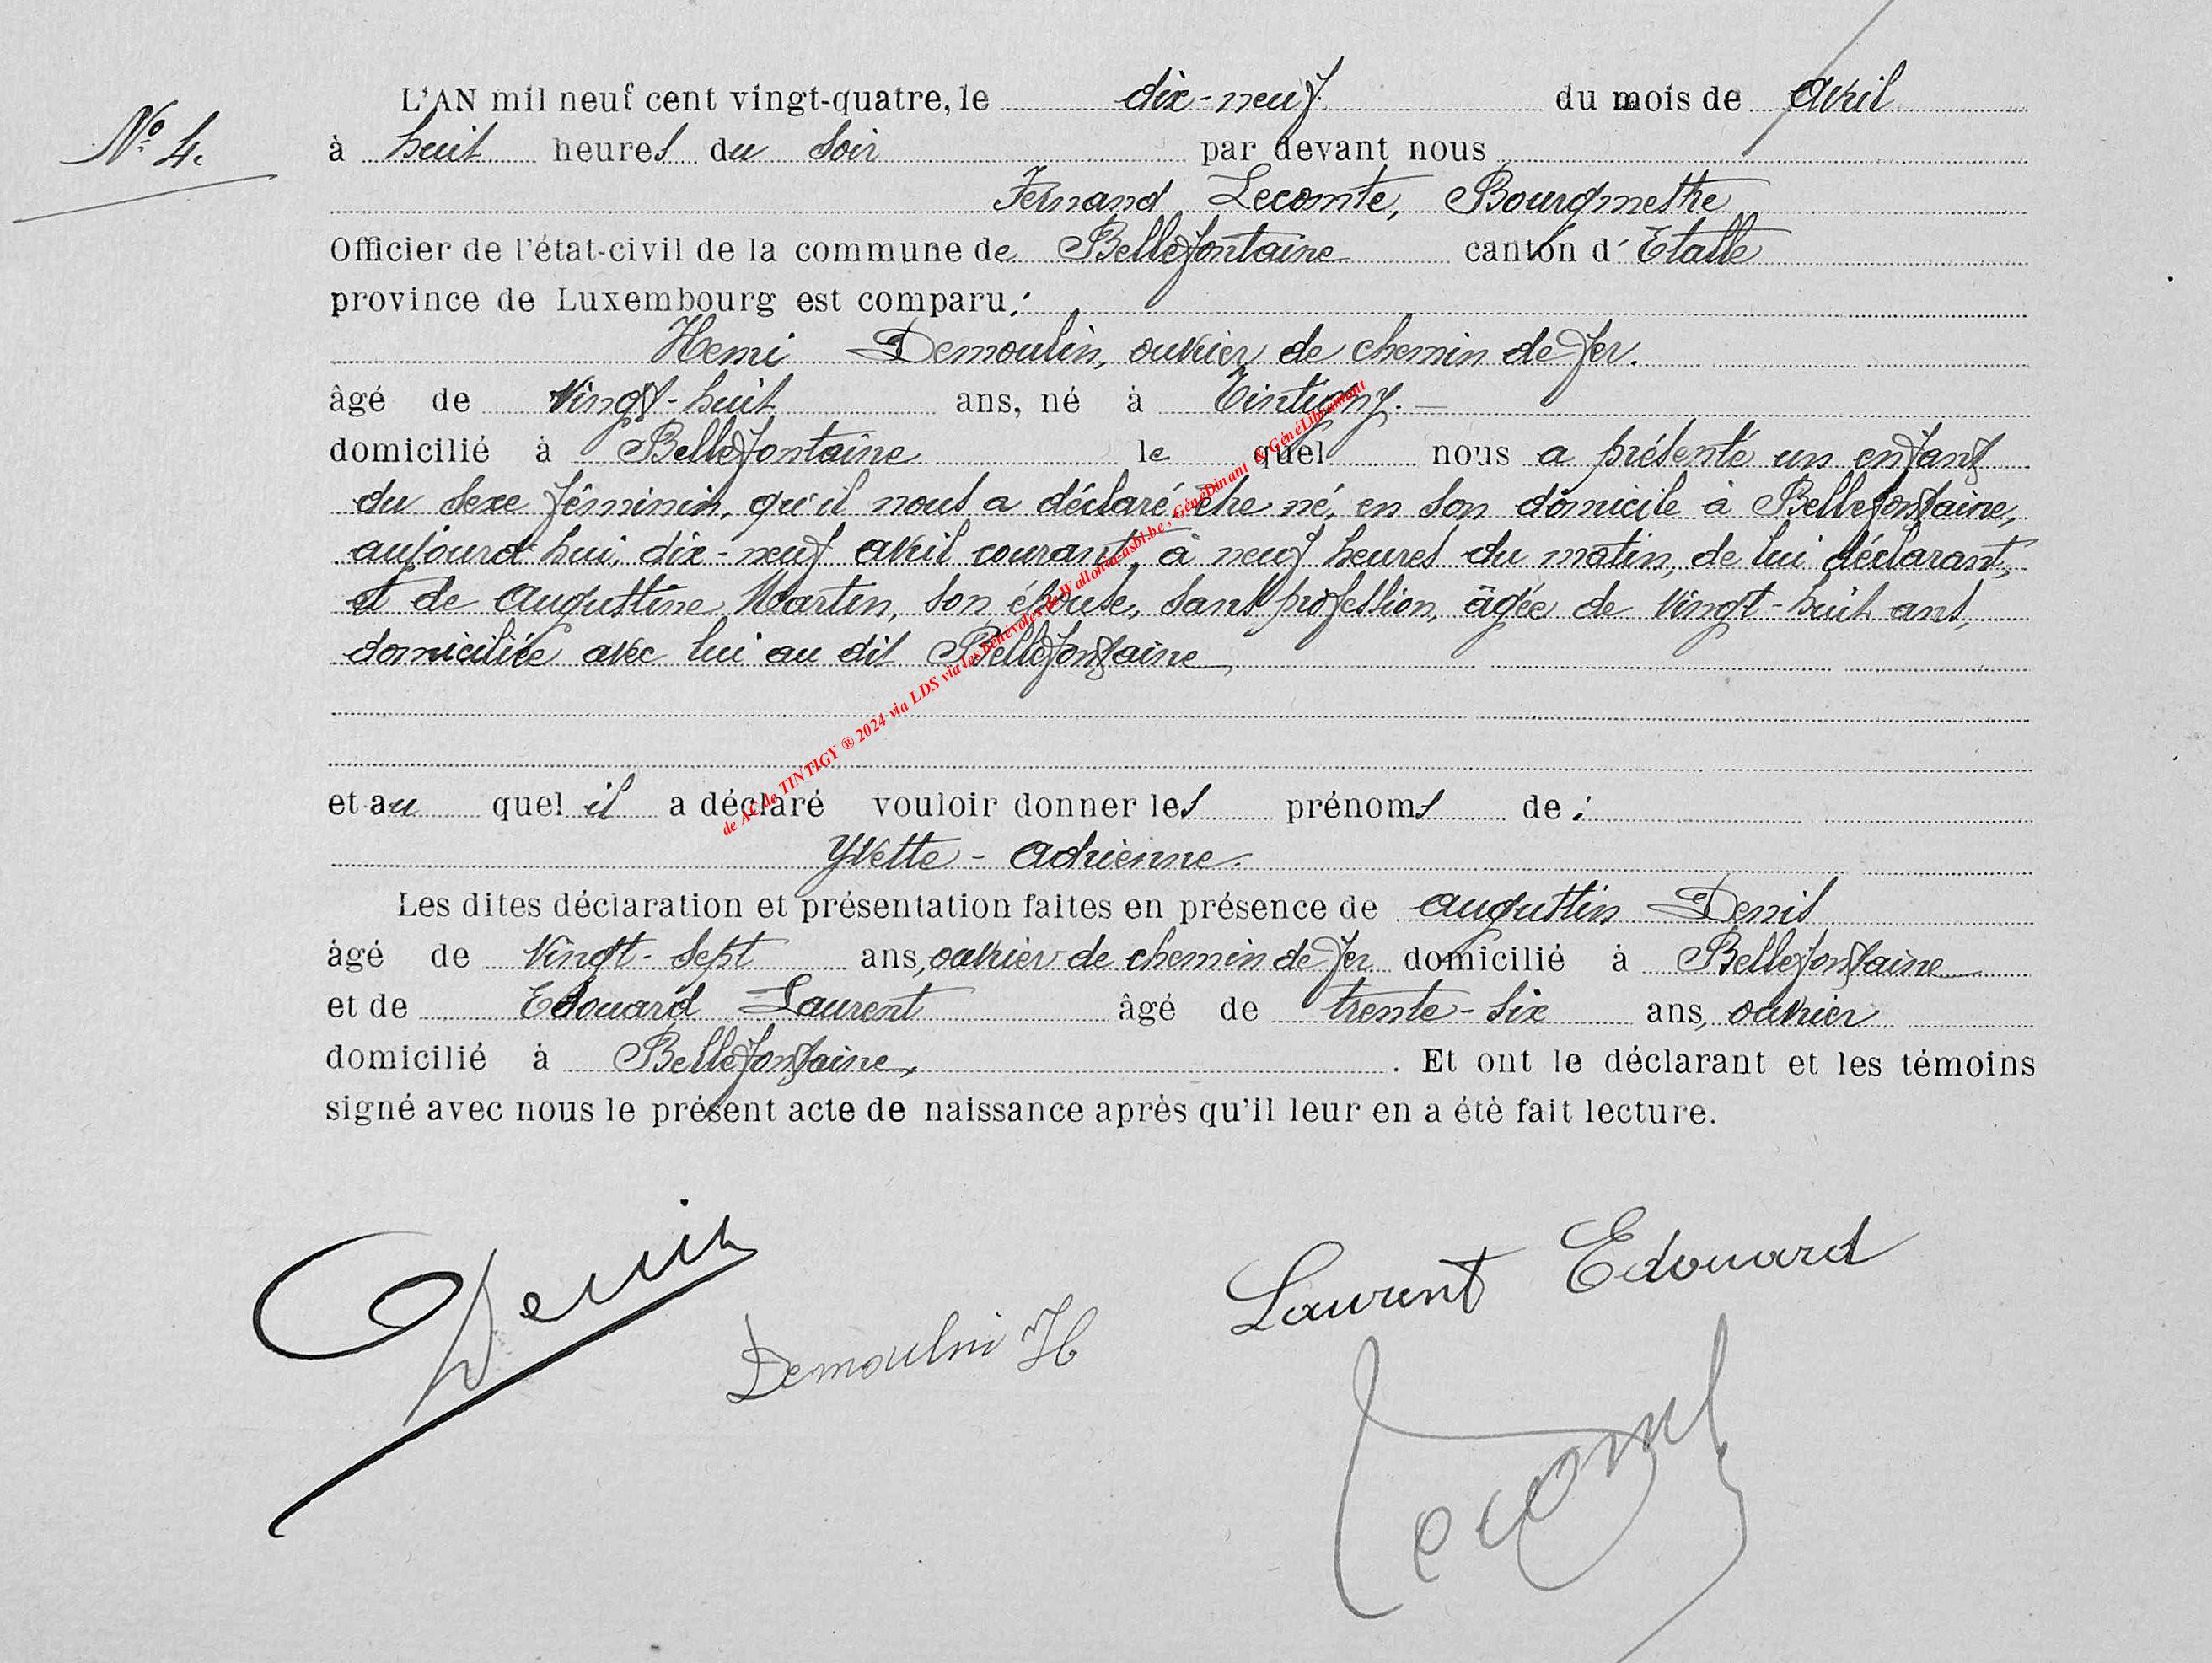 L'AN mil neuf cent vingt-quatre, le dix-neuf du mois de avril
N° 4.
à huit heures du soir par devant nous
Fernand Lecomte, Bourgmestre
Officier de l'état-civil de la commune de Bellefontaine canton d'Etalle
province de Luxembourg est comparu :
Henri Demoulin, ouvrier de chemin de fer.
âgé de vingt-huit ans, né à Tintigny. —
domicilié à Bellefontaine le quel nous a présenté un enfant
du sexe féminin, qu'il nous a déclaré être né, en son domicile à Bellefontaine,
aujourd'hui, dix-neuf avril courant, à neuf heures du matin, de lui déclarant,
et de Augustine Martin, son épouse, sans profession, âgée de vingt-huit ans,
domiciliée avec lui au dit Bellefontaine,
et au quel il a déclaré vouloir donner les prénoms de :
Yvette - Adrienne.
Les dites déclaration et présentation faites en présence de Augustin Denis
âgé de vingt-sept ans, ouvrier de chemin de fer domicilié à Bellefontaine
et de Edouard Laurent âgé de trente-six ans, ouvrier
domicilié à Bellefontaine, . Et ont le déclarant et les témoins
signé avec nous le présent acte de naissance après qu'il leur en a été fait lecture.
de AC de TINTIGY ® 2024 via LDS via les bénévoles de Wallonia-asbl.be, GénéDinant & GénéLibramont
Denis
Demoulin H
Laurent Edouard
Lecomte